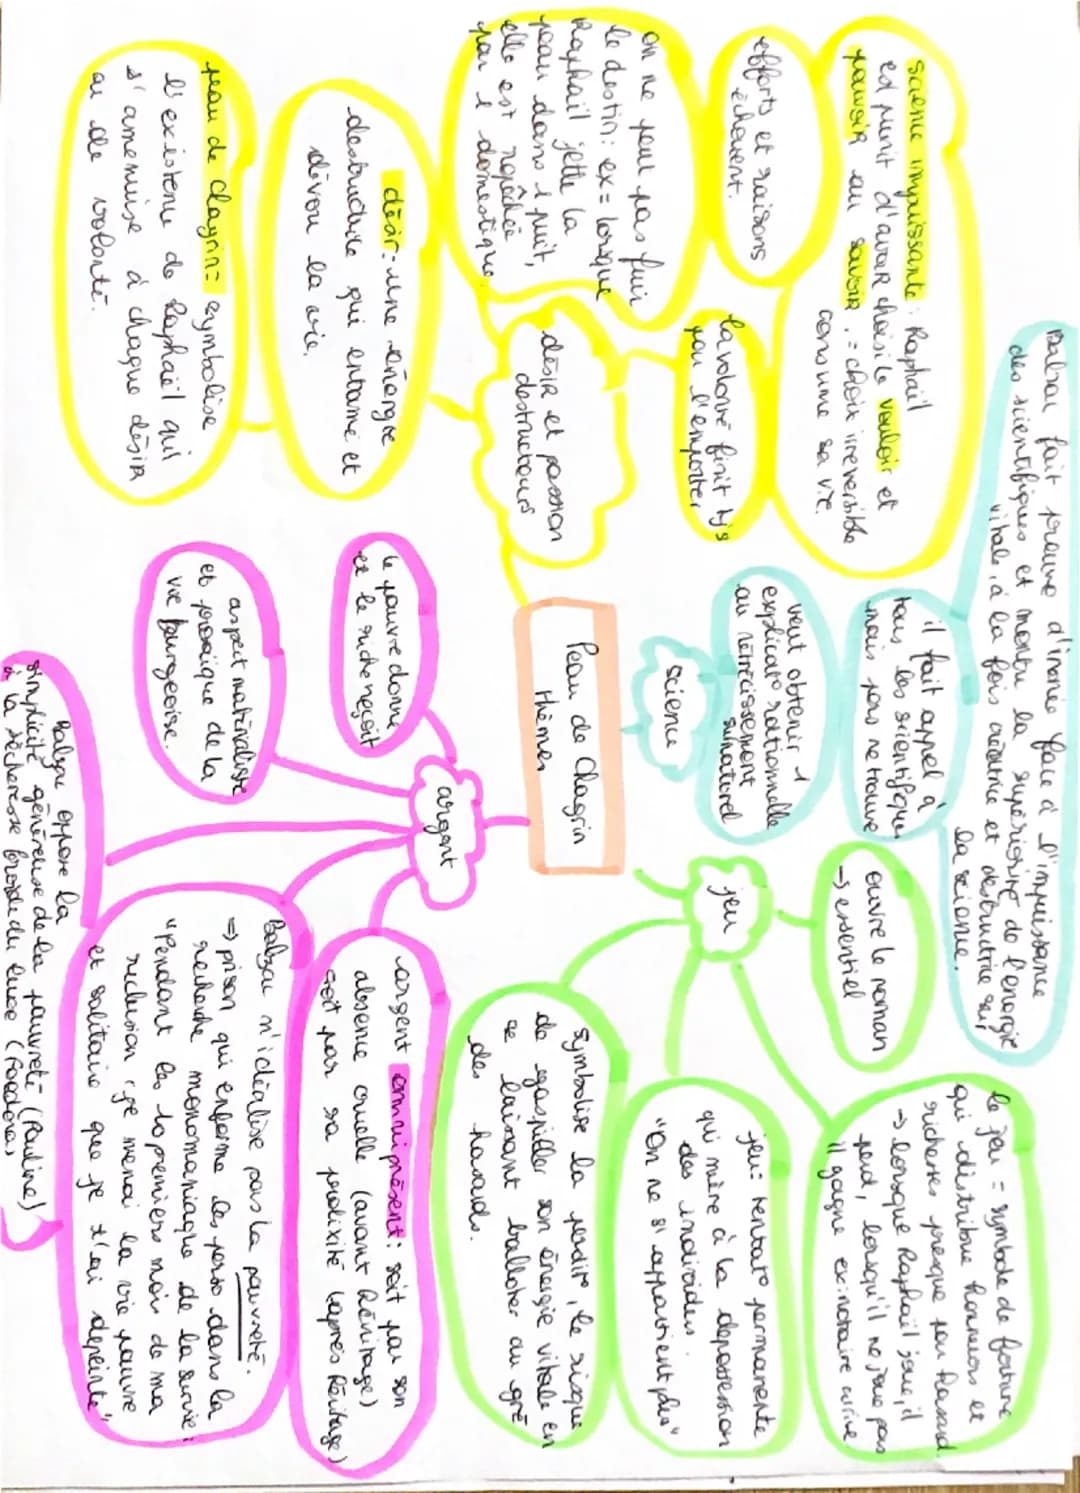 Peau de Chagrin
thèmes
science
veut obtenir 1
explicato rationnelle
au rétrécissement
surnaturel
il fait appel à
tous les scientifiques
mais pas ne trouve
Balzac fait preuve d'ironie face à l'impuissance
des scientifiques et montre la supériorité de l'énergie
vitale, à la fois créatrice et destructrice sur
la science.
jeu
ouvre le roman
→ essentiel
le jeu = symbole de fortune
qui distribue honneurs et
richesses presque par hasard
→ lorsque Raphaël joue, il
perd, lorsqu'il ne joue pas
il gagne ex: notaire arrive
jeu = tentato permanente
qui mène à la depossession
des individus.
"On ne s'appartient plus"
symbolise la perdito, le risque
de gaspiller son énergie vitale en
se laissant ballotter au gré
des hasards.
argent
argent omniprésent : soit par son
absence cruelle (avant héritage)
soit par sa prolixité (après héritage)
Balzac n'idéalise pas la pauvreté.
⇒ prison qui enferme les perso dans la
recherche monomaniaque de la survie :
"Pendant les 10 premiers mois de ma
reclusion, je menai la vie pauvre
et solitaire que je t'ai dépeinte"
Balzac oppose la
simplicité généreuse de la pauvreté (Pauline)
à la sécheresse froide du luxe (Foedora)
aspect matérialiste
et prosaïque de la
vie bourgeoise.
le pauvre donne
et le riche reçoit
désir et passion
destructeurs
la volonté finit tjs
par l'emporter
science impuissante : Raphaël
est punit d'avoir choisi le vouloir et
pouvoir au savoir. = choix irreversible
consumme sa vie.
efforts et raisons
échouent.
On ne peut pas fuir
le destin : ex = lorsque
Raphaël jette la
peau dans 1 puit,
elle est repêchée
par 1 domestique.
désir : une énergie
destructrice qui entame et
dévore la vie.
peau de chagrin = symbolise
l'existence de Raphaël qui
s'amenuise à chaque désir
ou de volonté.